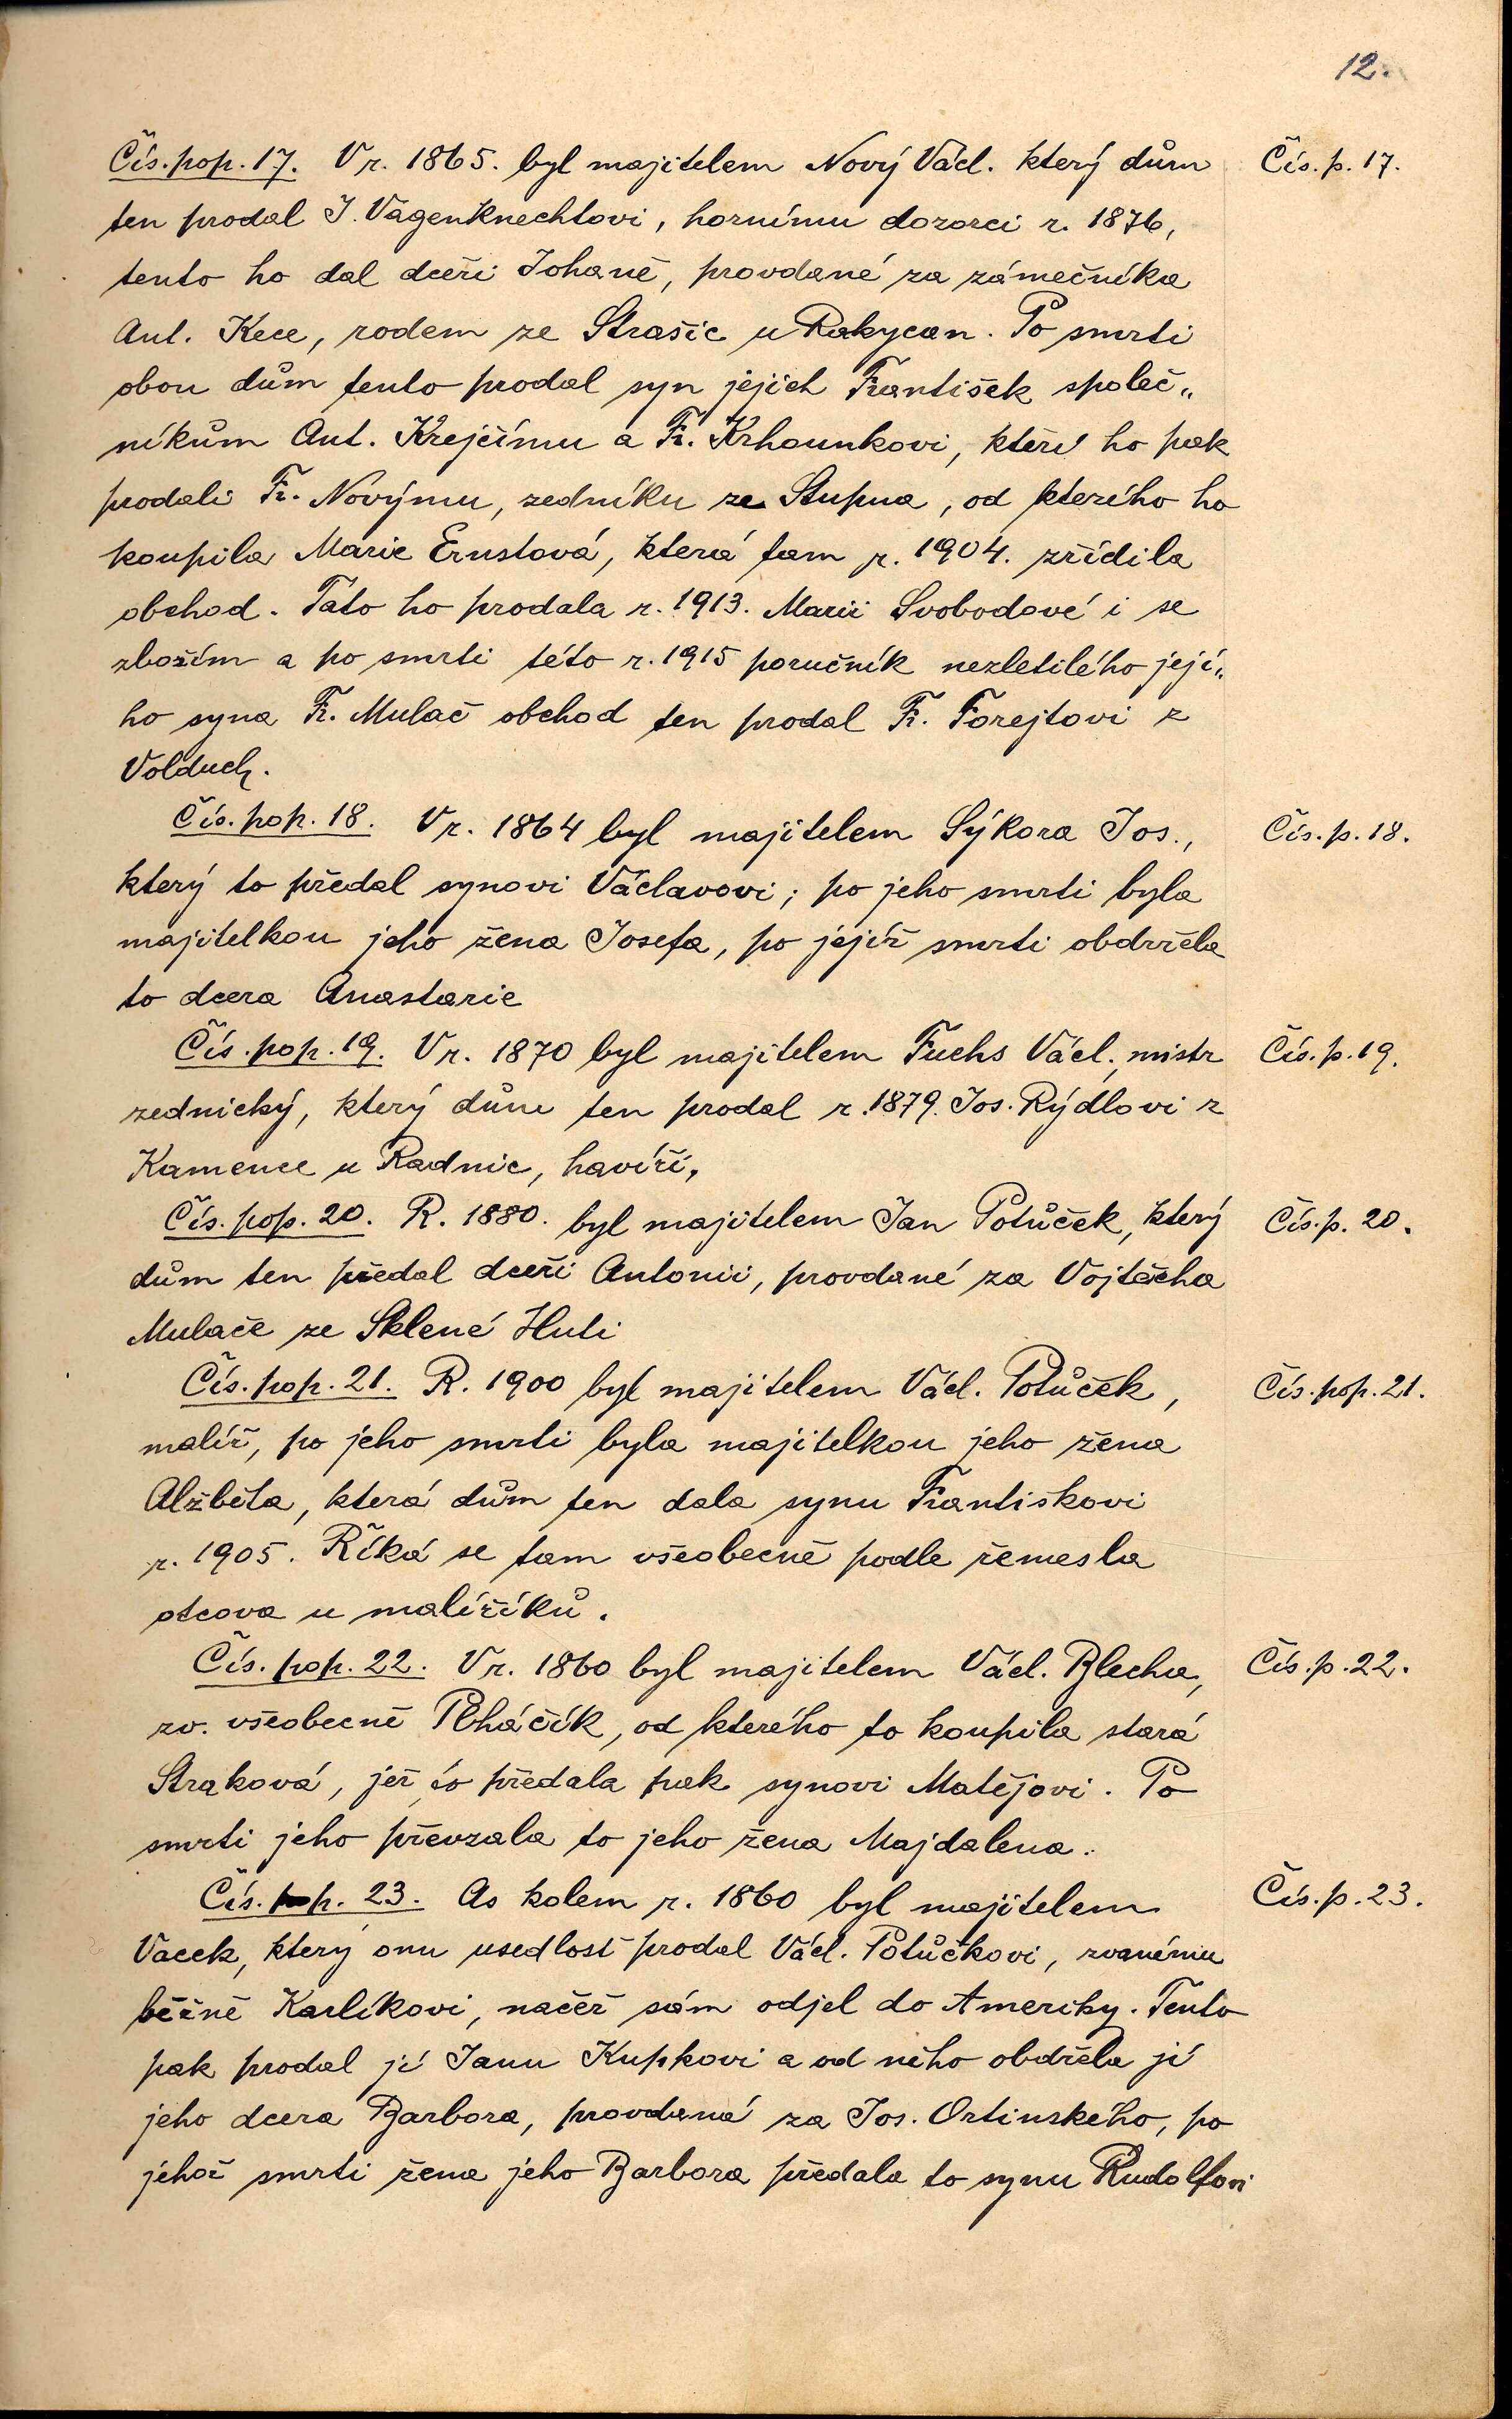 12.
Čís. pop. 17. V r. 1865. byl majitelem Nový Václ. který dům
Čís. p. 17.
ten prodal J. Vagenknechtovi, hornímu dozorci r. 1876,
tento ho dal dceři Johaně, provdané za zámečníka
Ant. Kece, rodem ze Strašic u Rokycan. Po smrti
obou dům tento prodal syn jejich František společ„
níkům Ant. Krejčímu a Fr. Krhounkovi, kteří ho pak
prodali Fr. Novýmu, zedníku ze Stupna, od kterého ho
koupila Marie Ernstová, která tam r. 1904. zřídila
obchod. Tato ho prodala r. 1913. Marii Svobodové i se
zbožím a po smrti této r. 1915 poručník nezletilého její„
ho syna Fr. Mulač obchod ten prodal Fr. Forejtovi z
Volduch.
Čís. pop. 18. V r. 1864 byl majitelem Sýkora Jos.,
Čís. p. 18.
který to předal synovi Václavovi; po jeho smrti byla
majitelkou jeho žena Josefa, po jejíž smrti obdržela
to dcera Anastazie
Čís. pop. 19. V r. 1870 byl majitelem Fuchs Václ., mistr
Čís. p. 19.
zednický, který dům ten prodal r. 1879. Jos. Rýdlovi z
Kamence u Radnic, havíři.
Čís. pop. 20. R. 1880. byl majitelem Jan Potůček, který
Čís. p. 20.
dům ten předal dceři Antonii, provdané za Vojtěcha
Mulače ze Sklené Huti
Čís. pop. 21. R. 1900 byl majitelem Václ. Potůček,
Čís. pop. 21.
malíř, po jeho smrti byla majitelkou jeho žena
Alžběta, která dům ten dala synu Františkovi
r. 1905. Říká se tam všeobecně podle řemesla
otcova u malíříků.
Čís. pop. 22. V r. 1860 byl majitelem Václ. Blecha,
Čís. p. 22.
zv. všeobecně Plháčík, od kterého to koupila stará
Straková, jež to předala pak synovi Matějovi. Po
smrti jeho převzala to jeho žena Majdalena.
Čís. pop. 23. As kolem r. 1860 byl majitelem
Čís. p. 23.
Vacek, který onu usedlost prodal Václ. Potůčkovi, zvanému
běžně Karlíkovi, načež sám odjel do Ameriky. Tento
pak prodal ji Janu Kupkovi a od něho obdržela ji
jeho dcera Barbora, provdaná za Jos. Ortinského, po
jehož smrti žena jeho Barbora předala to synu Rudolfovi